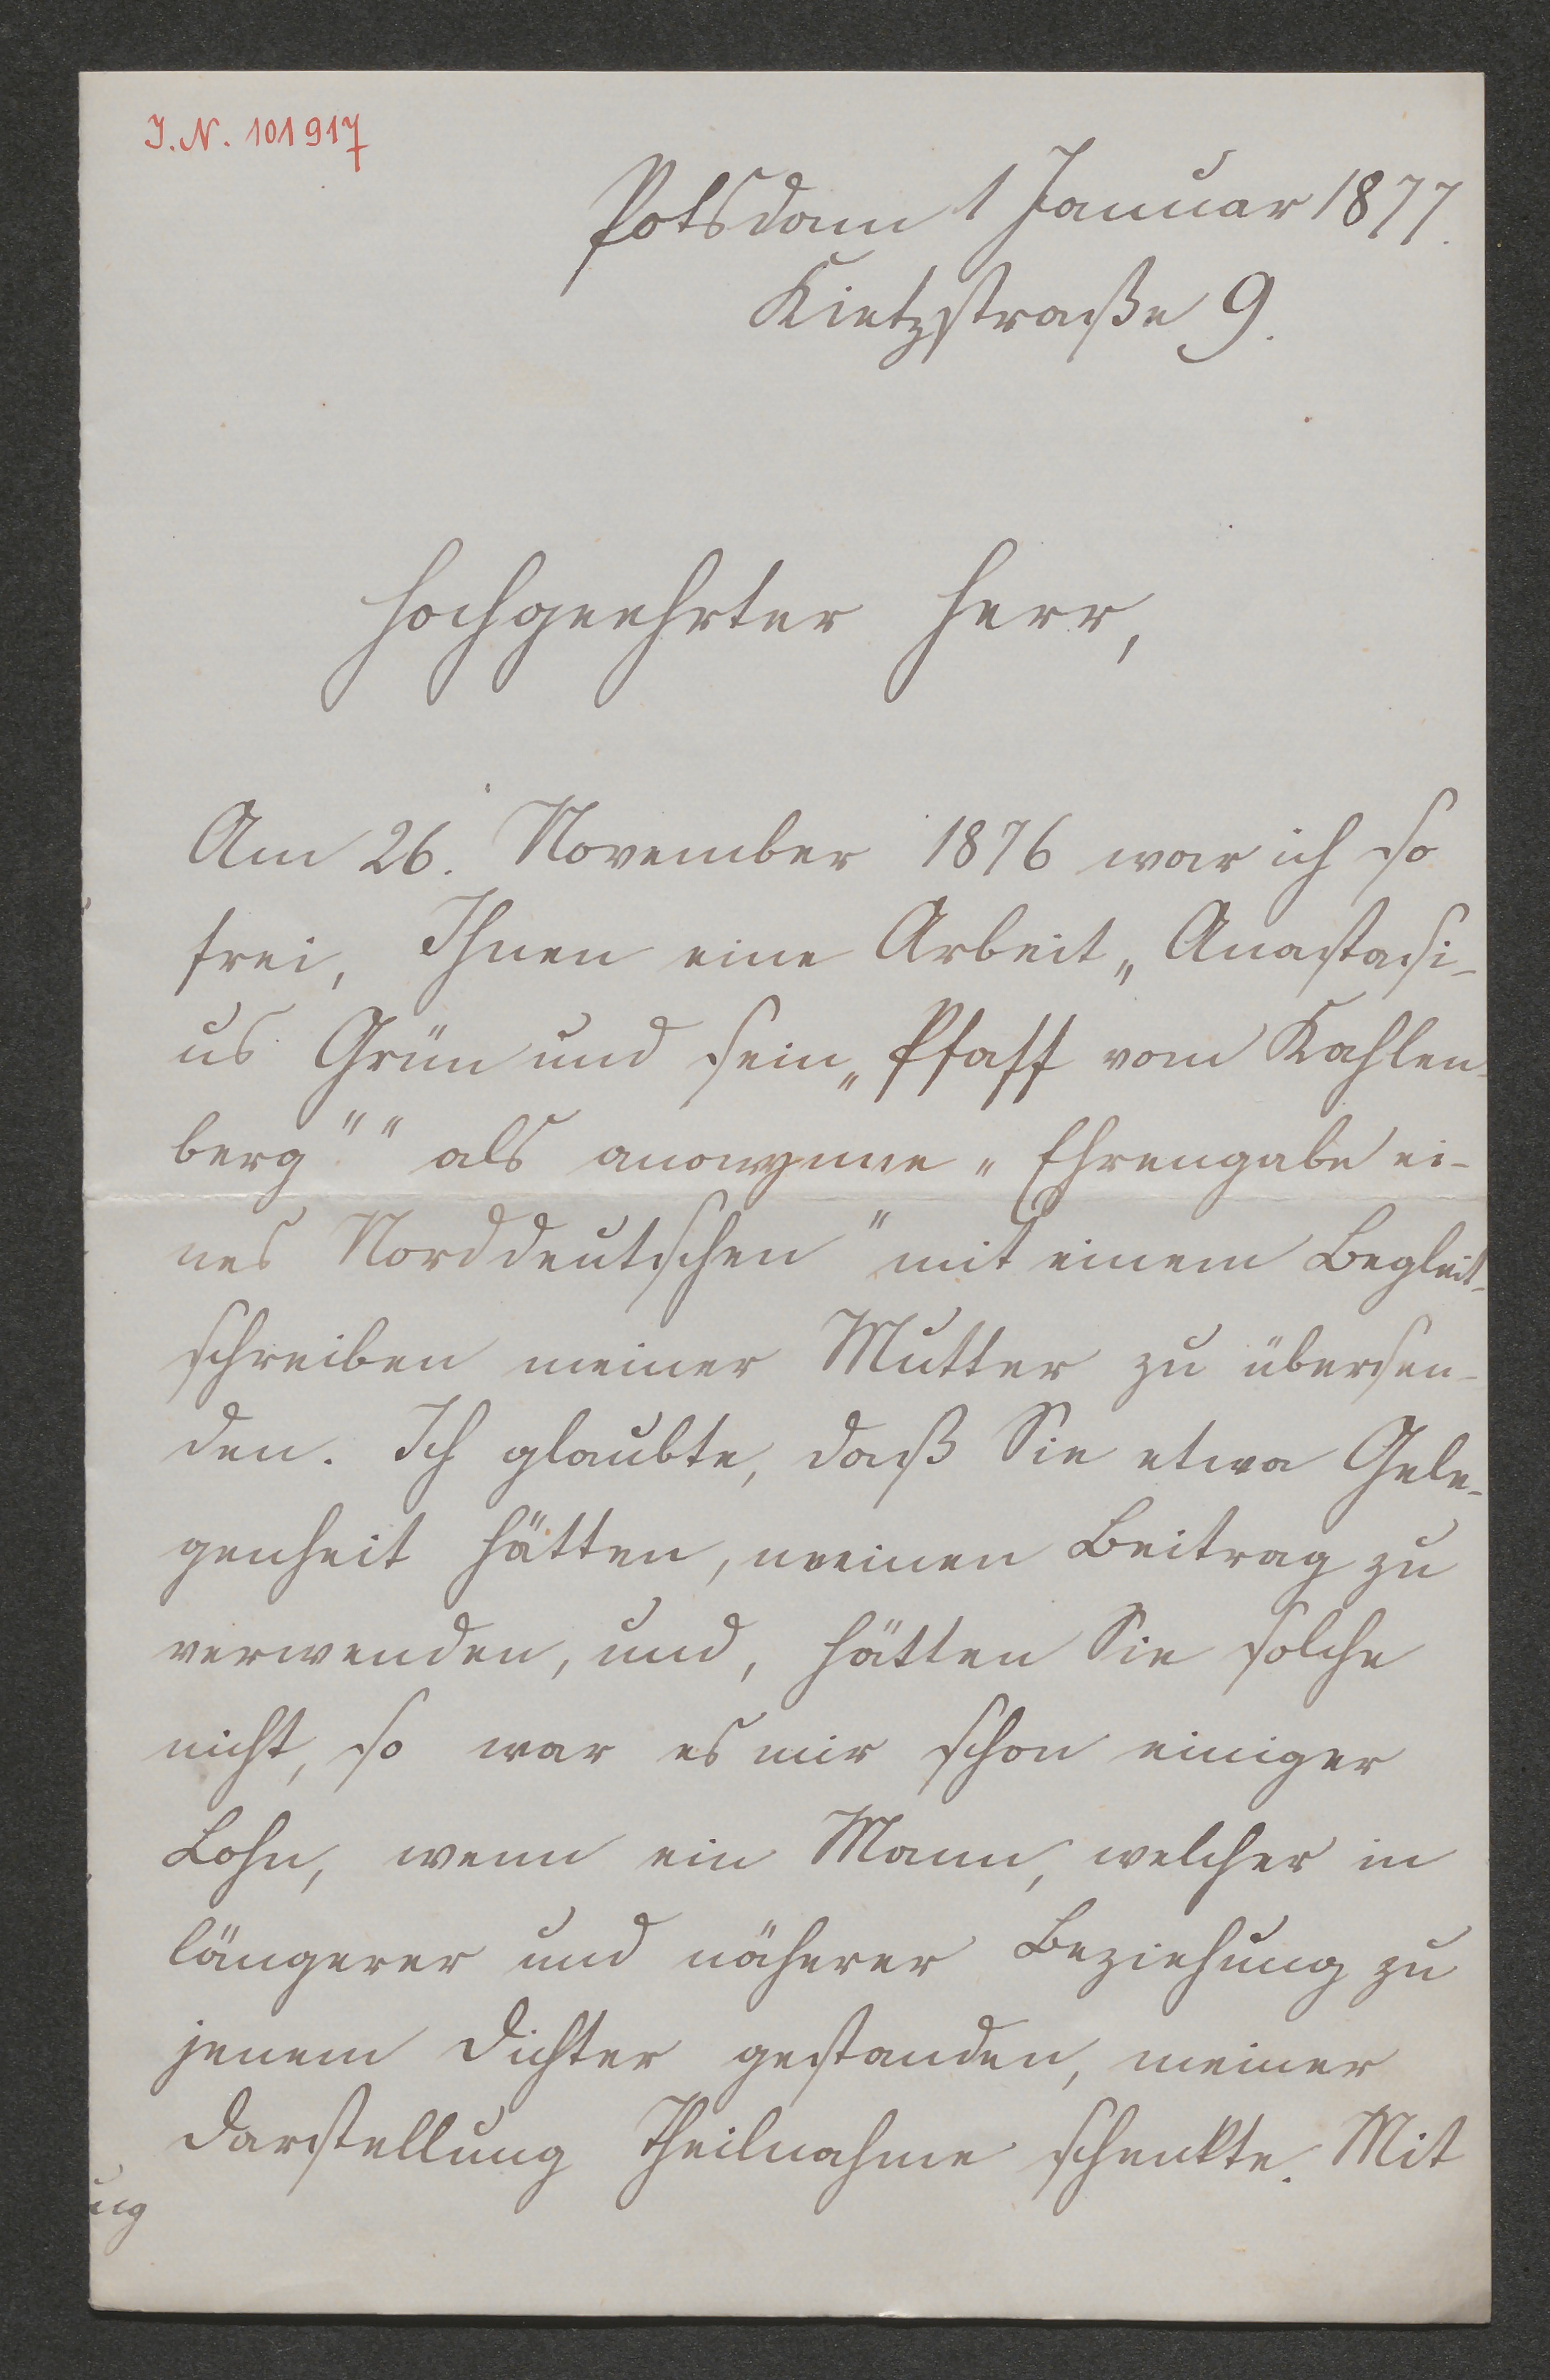 I.N. 101917
Potsdam 1 Januar 1877.
Kietzstraße 9.
Hochgeehrter Herr,
Am 26. November 1876 war ich so
frei, Ihnen eine Arbeit „Anastasi-
us Grün und sein „Pfaff vom Kahlen-
berg"" als anonyme „Ehrengabe ei-
nes Norddeutschen" mit einem Begleit-
schreiben meiner Mutter zu übersen-
den. Ich glaubte, daß Sie etwa Gele-
genheit hätten, meinen Beitrag zu
verwenden, und, hätten Sie solche
nicht, so war es mir schon einiger
Lohn, wenn ein Mann, welcher in
längerer und näherer Beziehung zu
jenem Dichter gestanden, meiner
Darstellung Theilnahme schenkte. Mit
ung